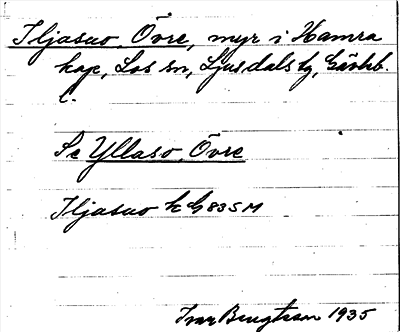 Iljasuo, Övre, myr i Hamra
kap, Los sn, Ljusdals tg, Gävleb.
l.
Se Yllaso, Övre
Iljasuo k G835M
Ivar Bengtsson 1935